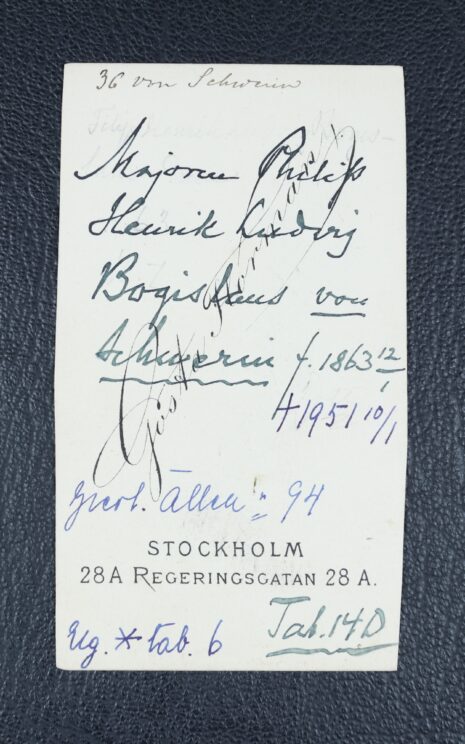 36 von Schwerin
Majoren Philip
Henrik Ludvig
Bogislaus von
Schwerin f. 1863 12/1
†1951 10/1
Gösta Florman
Ällen 94
STOCKHOLM
28A REGERINGSGATAN 28 A.
Tab. 14D
tab. 6